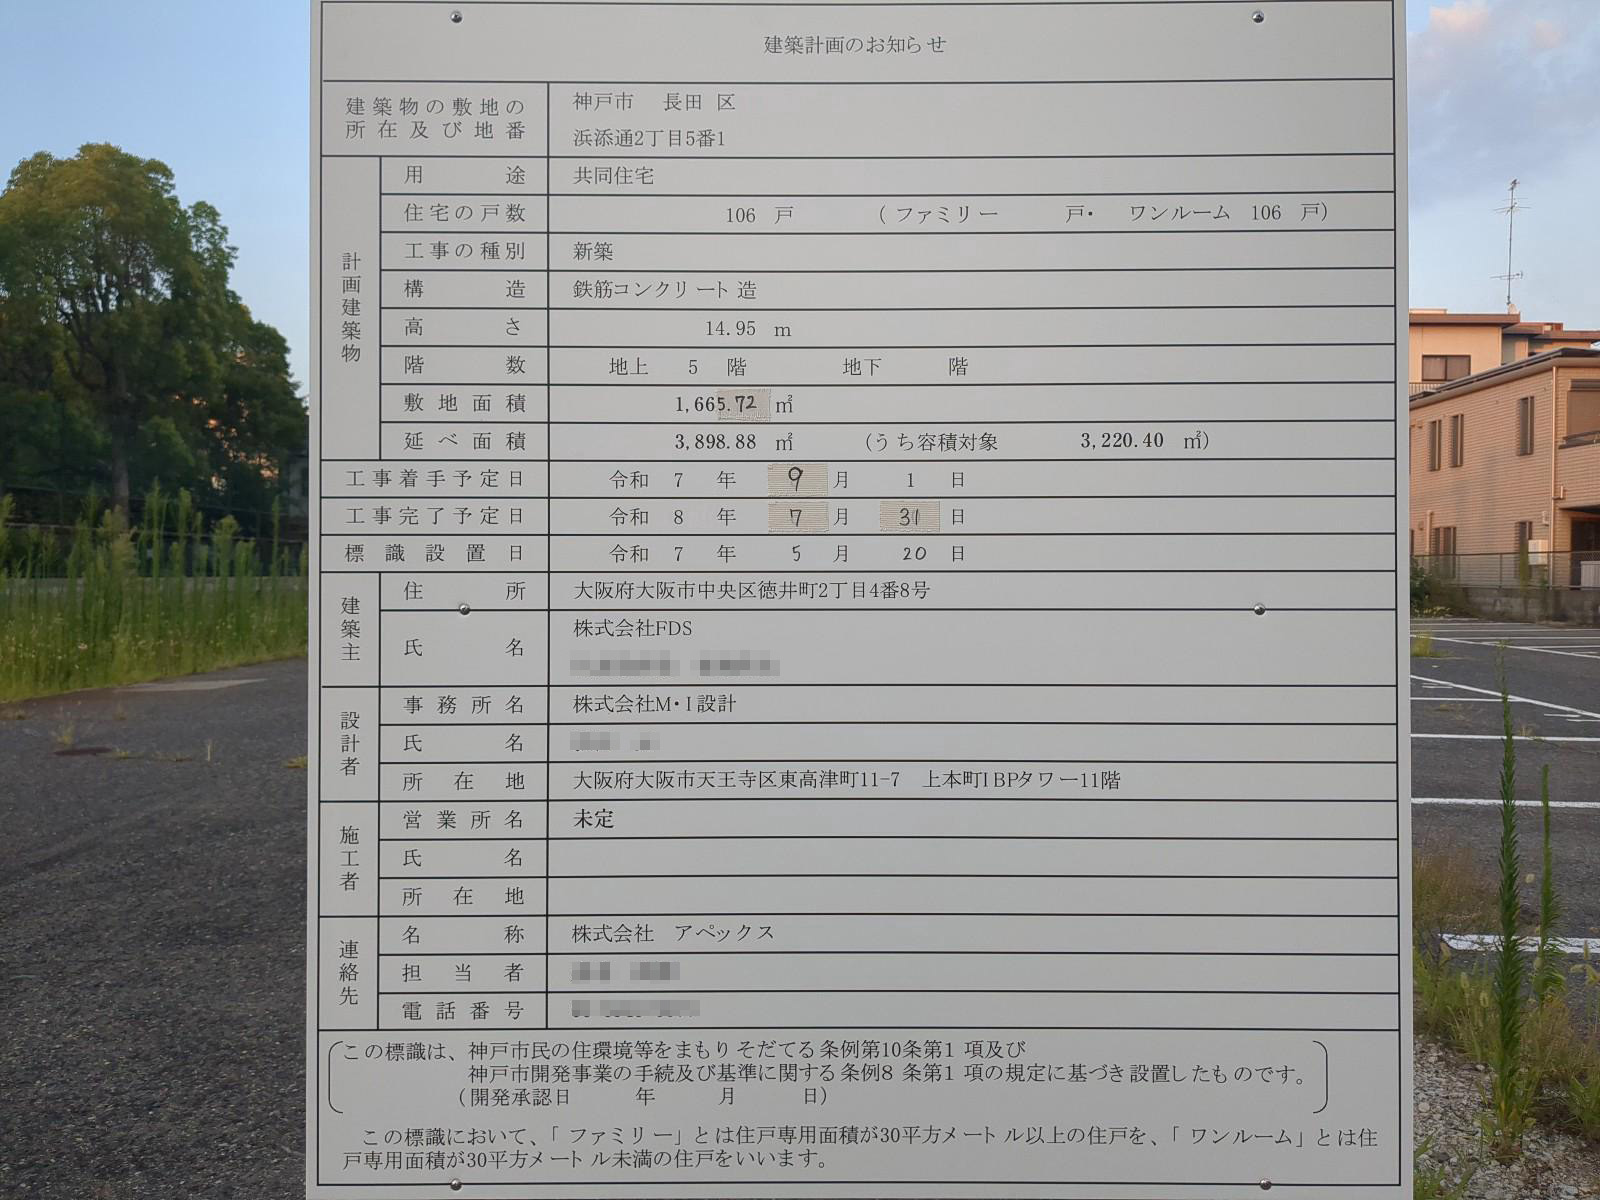 建築計画のお知らせ
建築物の敷地の所在及び地番 神戸市 長田 区
浜添通2丁目5番1
計画建築物
用途 共同住宅
住宅の戸数 106 戸 (ファミリー 戸・ ワンルーム 106 戸)
工事の種別 新築
構造 鉄筋コンクリート 造
高さ 14.95 m
階数 地上 5 階 地下 階
敷地面積 1,665.72 ㎡
延べ面積 3,898.88 ㎡ (うち容積対象 3,220.40 ㎡)
工事着手予定日 令和 7 年 9 月 1 日
工事完了予定日 令和 8 年 7 月 31 日
標識設置日 令和 7 年 5 月 20 日
建築主
住所 大阪府大阪市中央区徳井町2丁目4番8号
氏名 株式会社FDS
設計者
事務所名 株式会社M・I設計
氏名
所在地 大阪府大阪市天王寺区東高津町11-7 上本町IBPタワー11階
施工者
営業所名 未定
氏名
所在地
連絡先
名称 株式会社 アペックス
担当者
電話番号
この標識は、神戸市民の住環境等をまもりそだてる条例第10条第1項及び
神戸市開発事業の手続及び基準に関する条例8条第1項の規定に基づき設置したものです。
(開発承認日 年 月 日)
この標識において、「ファミリー」とは住戸専用面積が30平方メートル以上の住戸を、「ワンルーム」とは住
戸専用面積が30平方メートル未満の住戸をいいます。